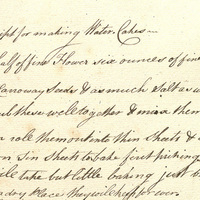 ipt for making Water Cakes—
Half of fine Flower six ounces of fine
Carroway Seeds & as much Salt as w
ub these well together & mix them
n role them out into thin Sheets &
on Tin Sheets to bake first pricking
ill take but little baking just
a dry place they will keep